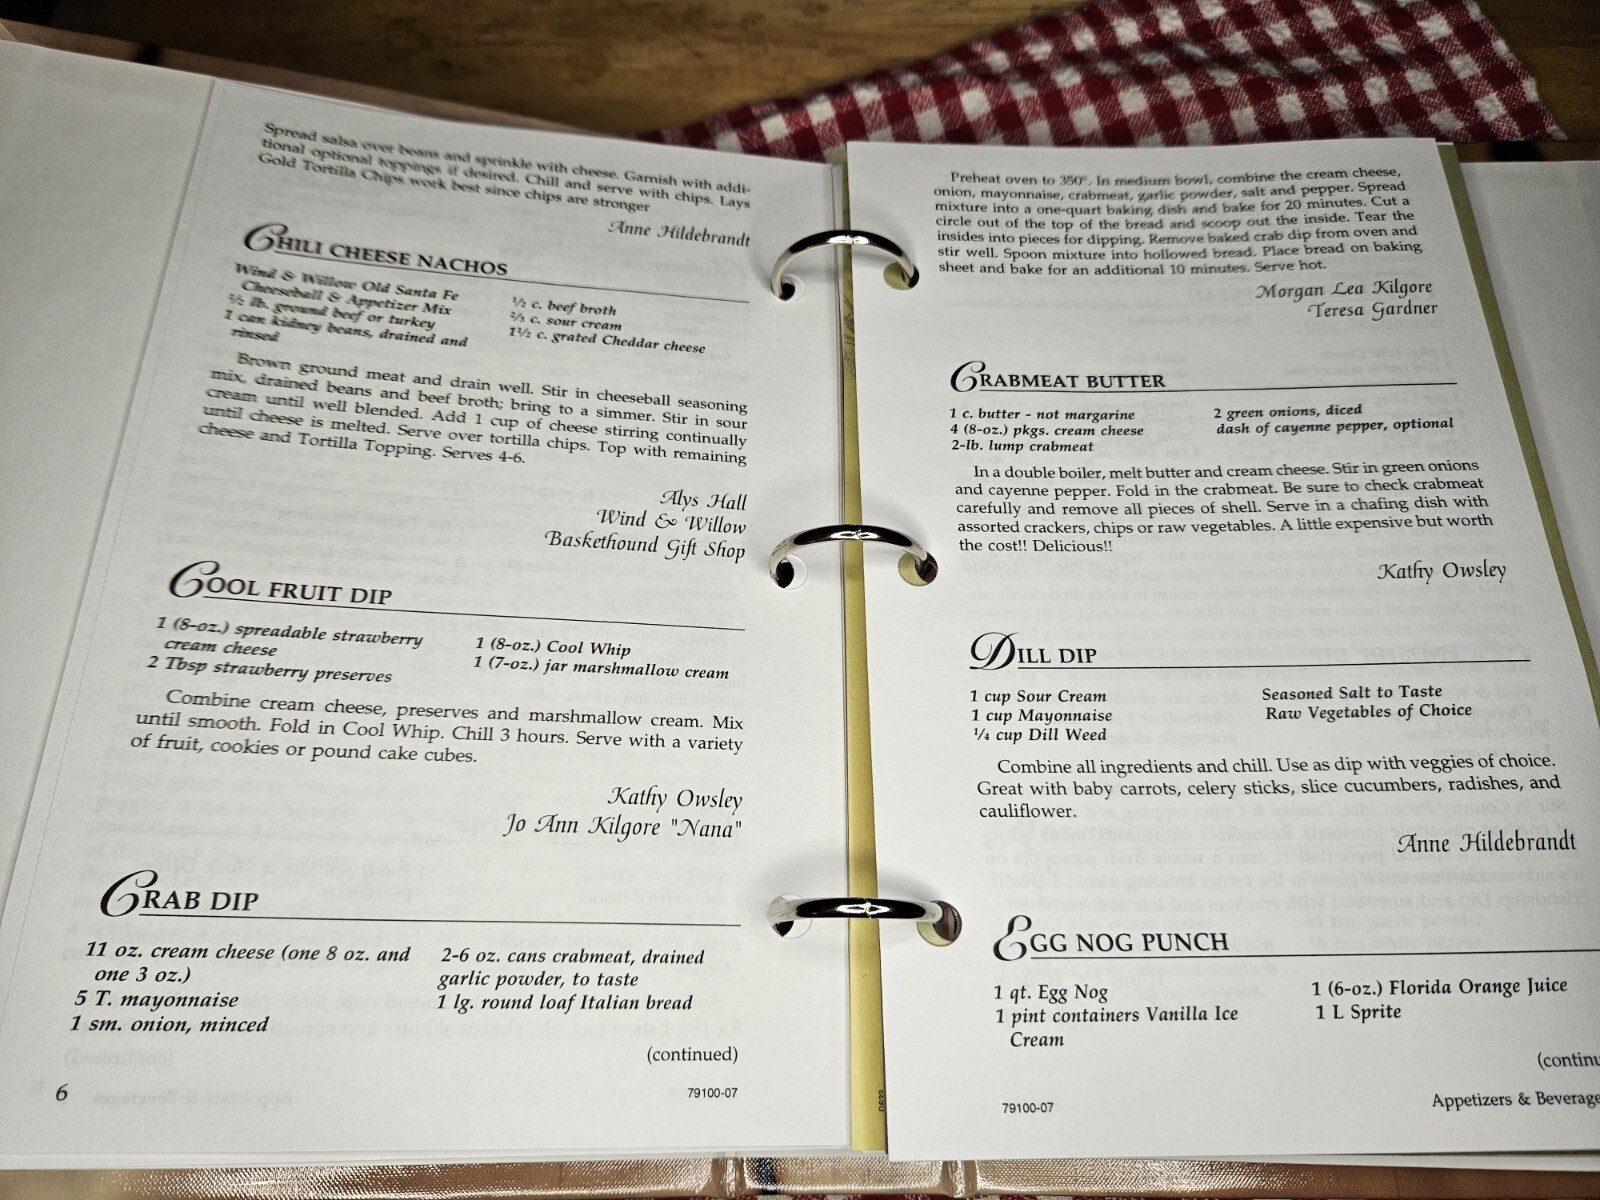 Spread salsa over beans and sprinkle with cheese. Garnish with addi-
tional optional toppings if desired. Chill and serve with chips. Lays
Gold Tortilla Chips work best since chips are stronger
Anne Hildebrandt
CHILI CHEESE NACHOS
Wind & Willow Old Santa Fe
Cheeseball & Appetizer Mix
½ lb. ground beef or turkey
1 can kidney beans, drained and
rinsed
½ c. beef broth
⅔ c. sour cream
1½ c. grated Cheddar cheese
Brown ground meat and drain well. Stir in cheeseball seasoning
mix, drained beans and beef broth; bring to a simmer. Stir in sour
cream until well blended. Add 1 cup of cheese stirring continually
until cheese is melted. Serve over tortilla chips. Top with remaining
cheese and Tortilla Topping. Serves 4-6.
Alys Hall
Wind & Willow
Baskethound Gift Shop
COOL FRUIT DIP
1 (8-oz.) spreadable strawberry
cream cheese
2 Tbsp strawberry preserves
1 (8-oz.) Cool Whip
1 (7-oz.) jar marshmallow cream
Combine cream cheese, preserves and marshmallow cream. Mix
until smooth. Fold in Cool Whip. Chill 3 hours. Serve with a variety
of fruit, cookies or pound cake cubes.
Kathy Owsley
Jo Ann Kilgore "Nana"
CRAB DIP
11 oz. cream cheese (one 8 oz. and
one 3 oz.)
5 T. mayonnaise
1 sm. onion, minced
2-6 oz. cans crabmeat, drained
garlic powder, to taste
1 lg. round loaf Italian bread
(continued)
6
79100-07
Preheat oven to 350°. In medium bowl, combine the cream cheese,
onion, mayonnaise, crabmeat, garlic powder, salt and pepper. Spread
mixture into a one-quart baking dish and bake for 20 minutes. Cut a
circle out of the top of the bread and scoop out the inside. Tear the
insides into pieces for dipping. Remove baked crab dip from oven and
stir well. Spoon mixture into hollowed bread. Place bread on baking
sheet and bake for an additional 10 minutes. Serve hot.
Morgan Lea Kilgore
Teresa Gardner
CRABMEAT BUTTER
1 c. butter - not margarine
4 (8-oz.) pkgs. cream cheese
2-lb. lump crabmeat
2 green onions, diced
dash of cayenne pepper, optional
In a double boiler, melt butter and cream cheese. Stir in green onions
and cayenne pepper. Fold in the crabmeat. Be sure to check crabmeat
carefully and remove all pieces of shell. Serve in a chafing dish with
assorted crackers, chips or raw vegetables. A little expensive but worth
the cost!! Delicious!!
Kathy Owsley
DILL DIP
1 cup Sour Cream
1 cup Mayonnaise
¼ cup Dill Weed
Seasoned Salt to Taste
Raw Vegetables of Choice
Combine all ingredients and chill. Use as dip with veggies of choice.
Great with baby carrots, celery sticks, slice cucumbers, radishes, and
cauliflower.
Anne Hildebrandt
EGG NOG PUNCH
1 qt. Egg Nog
1 pint containers Vanilla Ice
Cream
1 (6-oz.) Florida Orange Juice
1 L Sprite
(continu
79100-07
Appetizers & Beverage